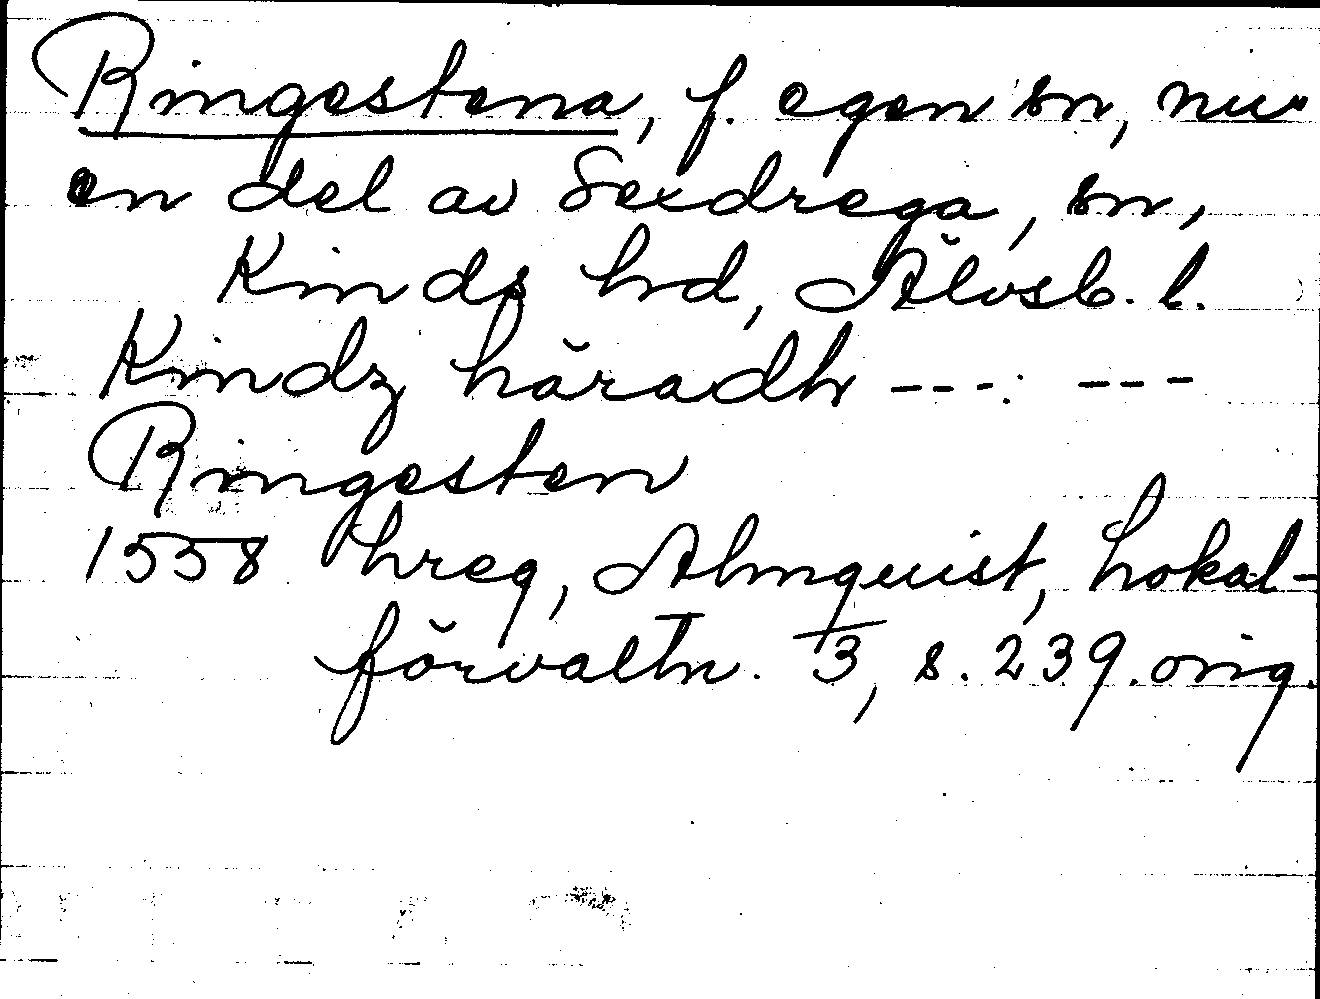 Ringestena, f. egen sn, nu
en del av Sexdrega, sn,
Kinds hd, Älvsb. l.
Kindz häradh ---: ---
Ringesten
1558 hreg, Almquist, Lokal-
förvaltn. 3, s. 239. orig.